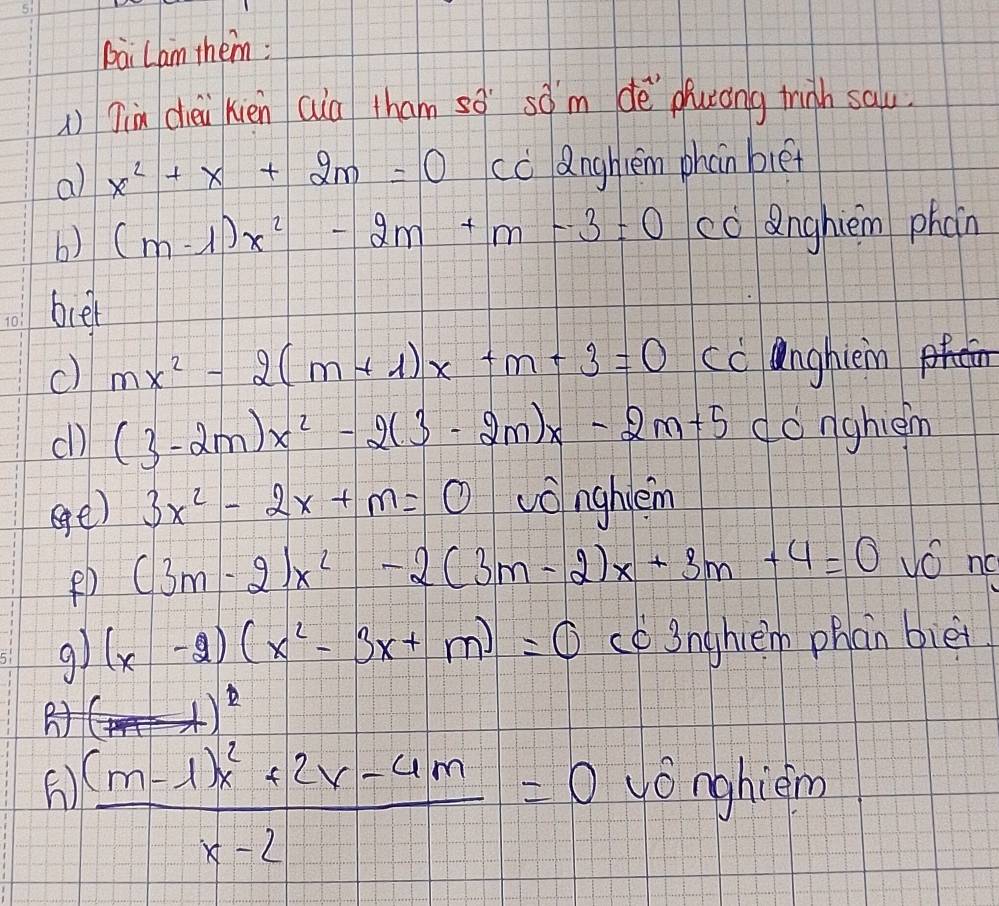 Bài Làm thêm :
1) Tìm điều kiện của tham số số m để phương trình sau.
a) x² + x + 2m = 0 có 2nghiệm phân biệt
b) (m-1)x² - 2m + m - 3 = 0 có 2nghiệm phân
biệt
c) mx² - 2(m+1)x + m + 3 = 0 có nghiệm phân
d) (3-2m)x² - 2(3-2m)x - 2m+5 có nghiệm
e) 3x² - 2x + m = 0 vô nghiệm
f) (3m-2)x² - 2(3m-2)x + 3m + 4 = 0 vô ng
g) (x-2)(x² - 3x + m) = 0 có 3nghiệm phân biệt.
h) (m-1)x² + 2x - 4m = 0 vô nghiệm
x - 2